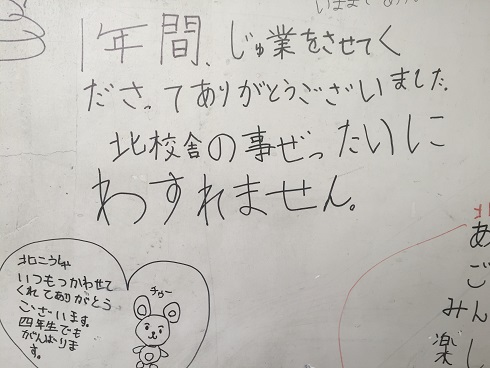 1年間、じゅ業をさせてく
ださってありがとうございました。
北校舎の事ぜったいに
わすれません。
北こうしゃ
いつもつかわせて
くれてありがとう
ございます。
四年生でも
がんばりま
す。
チゥー